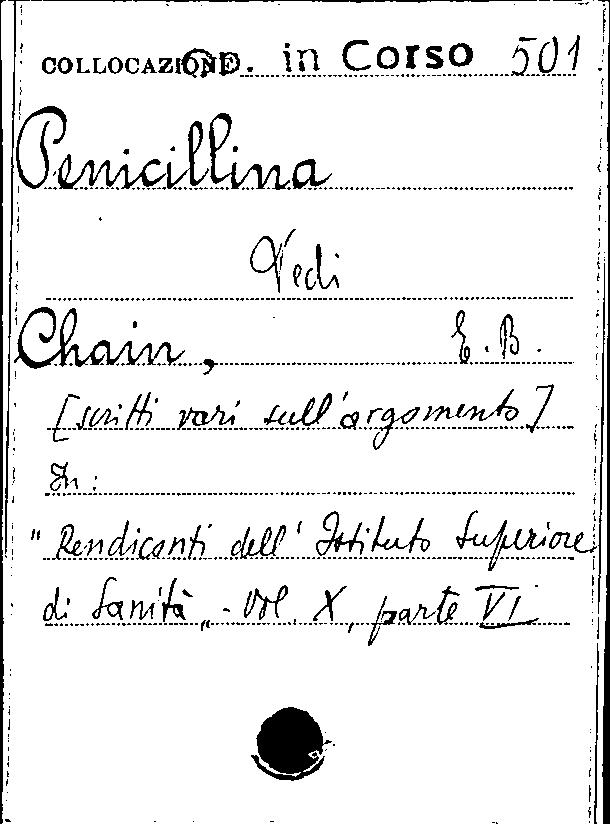 COLLOCAZIONE OP. in Corso 501
Penicillina
Vedi
Chain, E. B.
[scritti vari sull'argomento]
In:
"Rendiconti dell'Istituto Superiore
di Sanità„ - Vol. X, parte VI